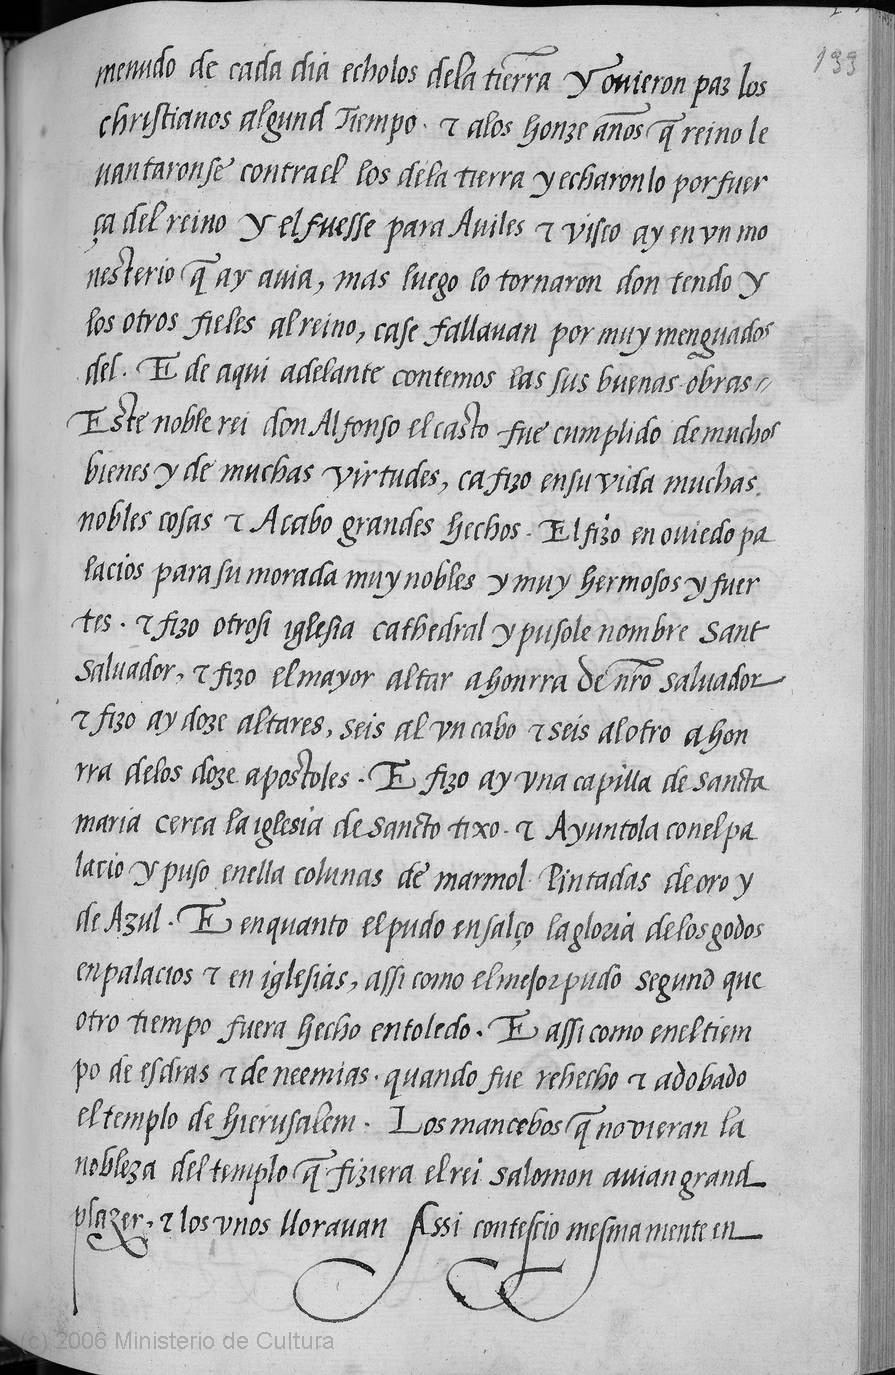 133
menudo de cada dia echolos dela tierra y ouieron paz los
christianos algund Tiempo · τ alos honze años q̃ reino le
uantaronse contra el los dela tierra y echaronlo por fuer
ça del reino y el fuesse para Auiles τ visco ay en vn mo
nesterio q̃ ay auia, mas luego lo tornaron don tendo y
los otros fieles al reino, ca se fallauan por muy menguados
del. E de aqui adelante contemos las sus buenas obras //
Este noble rei don Alfonso el casto fue cumplido de muchos
bienes y de muchas virtudes, ca fizo en su vida muchas
nobles cosas τ Acabo grandes hechos. El fizo en ouiedo pa
lacios para su morada muy nobles y muy hermosos y fuer
tes. τ fizo otrosi iglesia cathedral y pusole nombre Sant
Saluador, τ fizo el mayor altar a honrra de nr̃o saluador
τ fizo ay doze altares, seis al vn cabo τ seis al otro a hon
rra delos doze apostoles. E fizo ay vna capilla de sancta
maria cerca la iglesia de sancto tixo. τ Ayuntola con el pa
lacio y puso enella colunas de marmol Pintadas de oro y
de Azul. E en quanto el pudo ensalço la gloria de los godos
en palacios τ en iglesias, assi como el mejor pudo segund que
otro tiempo fuera hecho en toledo. E assi como en el tiem
po de esdras τ de neemias. quando fue rehecho τ adobado
el templo de hierusalem. Los mancebos q̃ no vieran la
nobleza del templo q̃ fiziera el rei salomon auian grand
plazer, τ los vnos llorauan Assi contescio mesmamente en
(c) 2006 Ministerio de Cultura